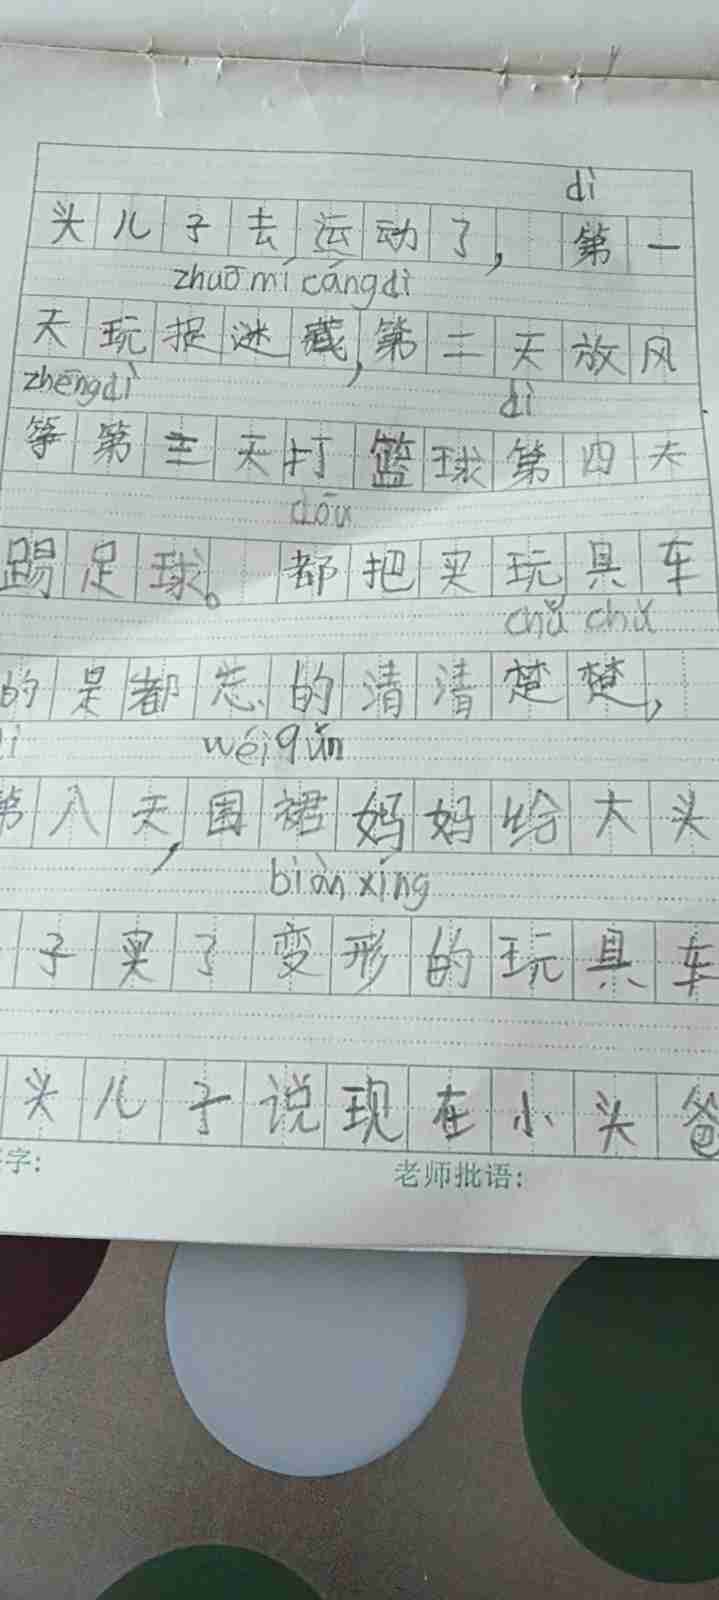 dì
头儿子去运动了, 第一
zhuō mí cáng dì
天玩捉迷藏,第二天放风
zhēng dì dì
筝第三天打篮球第四天
dōu
踢足球。都把买玩具车
chǔ chǔ
的是都忘的清清楚楚,
wéi qún
第八天,围裙妈妈给大头
biàn xíng
子买了变形的玩具车
头儿子说现在小头爸
字:
老师批语: